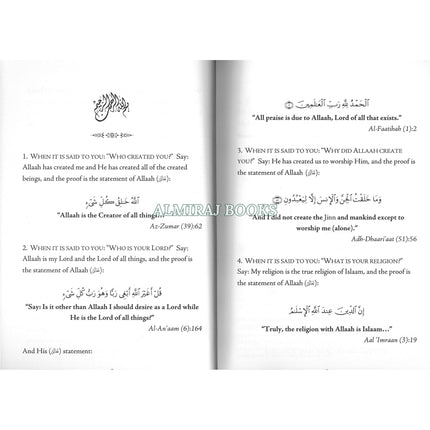 بسم الله الرحمن الرحيم
1. WHEN IT IS SAID TO YOU: "WHO CREATED YOU?" Say:
Allaah has created me and He has created all of the created
beings, and the proof is the statement of Allaah (ﷻ):
اللَّهُ خَالِقُ كُلِّ شَيْءٍ
"Allaah is the Creator of all things..."
Az-Zumar (39):62
2. WHEN IT IS SAID TO YOU: "WHO IS YOUR LORD?" Say:
Allaah is my Lord and the Lord of all things, and the proof is
the statement of Allaah (ﷻ):
قُلْ أَغَيْرَ اللَّهِ أَبْغِي رَبًّا وَهُوَ رَبُّ كُلِّ شَيْءٍ
"Say: Is it other than Allaah I should desire as a Lord while
He is the Lord of all things?"
Al-An'aam (6):164
And His (ﷻ) statement:
الْحَمْدُ لِلَّهِ رَبِّ الْعَالَمِينَ
"All praise is due to Allaah, Lord of all that exists."
Al-Faatihah (1):2
3. WHEN IT IS SAID TO YOU: "WHY DID ALLAAH CREATE
YOU?" Say: He has created us to worship Him, and the proof
is the statement of Allaah (ﷻ):
وَمَا خَلَقْتُ الْجِنَّ وَالْإِنسَ إِلَّا لِيَعْبُدُونِ
"And I did not create the Jinn and mankind except to
worship me (alone)."
Adh-Dhaari'aat (51):56
4. WHEN IT IS SAID TO YOU: "WHAT IS YOUR RELIGION?"
Say: My religion is the true religion of Islaam, and the proof is
the statement of Allaah (ﷻ):
إِنَّ الدِّينَ عِندَ اللَّهِ الْإِسْلَامُ
"Truly, the religion with Allaah is Islaam..."
Aal 'Imraan (3):19
ALMIRAJ BOOKS